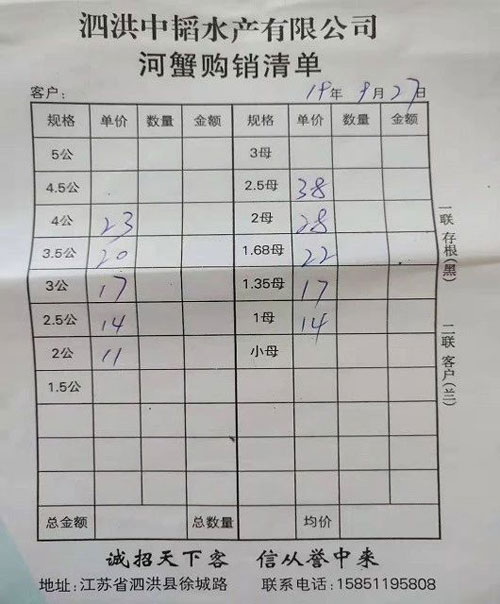 泗洪中韬水产有限公司
河蟹购销清单
客户: 19年 9月 27日
规格 单价 数量 金额 规格 单价 数量 金额
5公 3母
4.5公 2.5母 38
4公 23 2母 28
3.5公 20 1.68母 22
3公 17 1.35母 17
2.5公 14 1母 14
2公 11 小母
1.5公
总金额 总数量 均价
一联 存根(黑) 二联 客户(兰)
诚招天下客 信从誉中来
地址:江苏省泗洪县徐城路 联系电话:15851195808